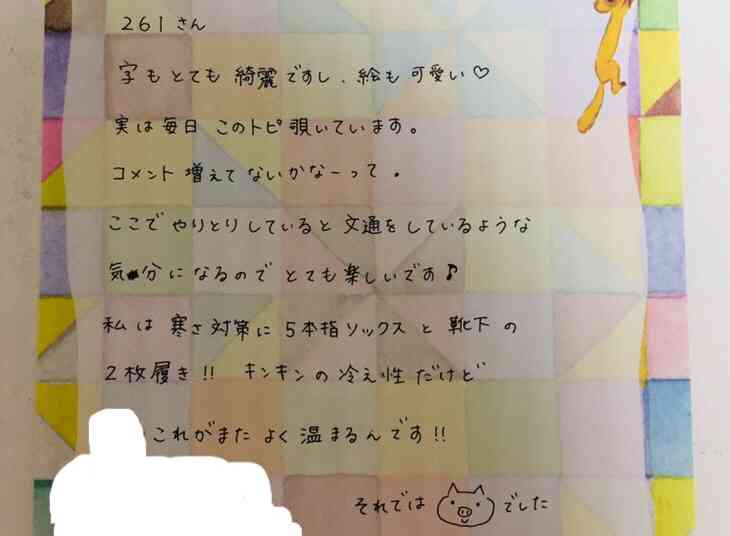 261さん
字もとても綺麗ですし、絵も可愛い♡
実は毎日このトピ覗いています。
コメント増えてないかなーって。
ここでやりとりしていると文通をしているような
気分になるのでとても楽しいです♪
私は寒さ対策に5本指ソックスと靴下の
2枚履き!! キンキンの冷え性だけど
これがまたよく温まるんです!!
それでは でした